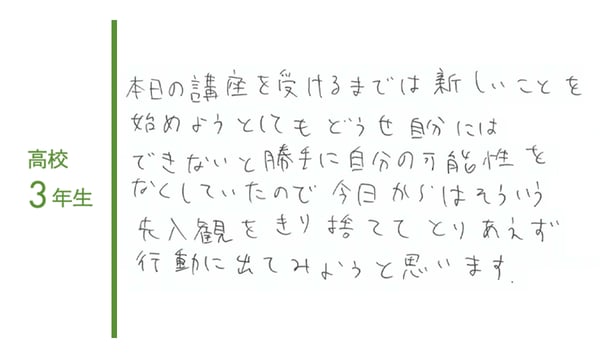 高校
3年生
本日の講座を受けるまでは新しいことを
始めようとしてもどうせ自分には
できないと勝手に自分の可能性を
なくしていたので今日からはそういう
先入観をきり捨ててとりあえず
行動に出てみようと思います.